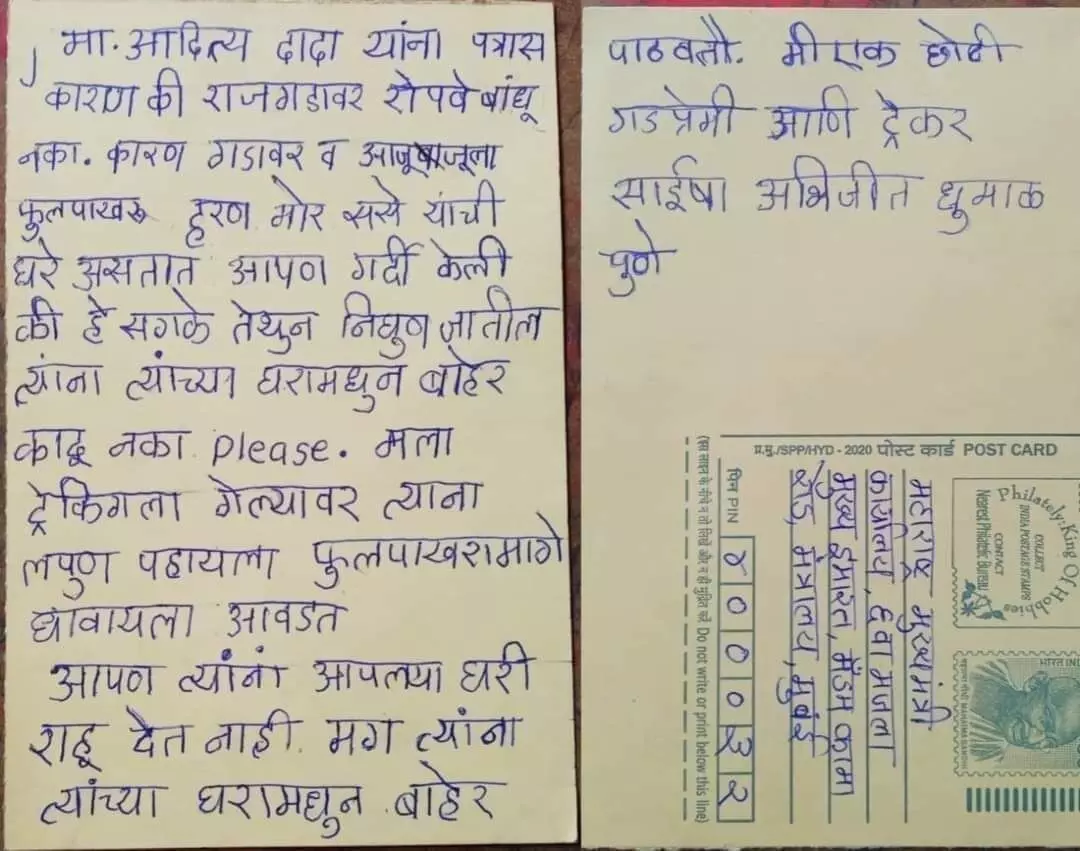 मा. आदित्य दादा यांना पत्रास
कारण की राजगडावर रोपवे बांधू
नका. कारण गडावर व आजूबाजूला
फुलपाखरू हरण मोर ससे यांची
घरे असतात आपण गर्दी केली
की हे सगळे तेथुन निघुण जातील
त्यांना त्यांच्या घरामधुन बाहेर
काढू नका please. मला
ट्रेकिंगला गेल्यावर त्याना
लपुण पहायला फुलपाखरामागे
धावायला आवडत
आपण त्यांनां आपल्या घरी
राहू देत नाही. मग त्यांना
त्यांच्या घरामधुन बाहेर
पाठवतो. मी एक छोटी
गड प्रेमी आणि ट्रेकर
साईषा अभिजीत धुमाळ
पुणे
प्र.मु./SPP/HYD - 2020 पोस्ट कार्ड POST CARD
Philately: King Of Hobbies
COLLECT
INDIA POSTAGE STAMPS
CONTACT
Nearest Philatelic Bureau
भारत IND
महाराष्ट्र मुख्यमंत्री
कार्यालय, ६ वा मजला
मुख्य इमारत, मॅडम कामा
रोड, मंत्रालय, मुंबई
पिन PIN ४०००३२
(इस लाइन के नीचे न तो लिखें और न ही मुद्रित करें Do not write or print below this line)